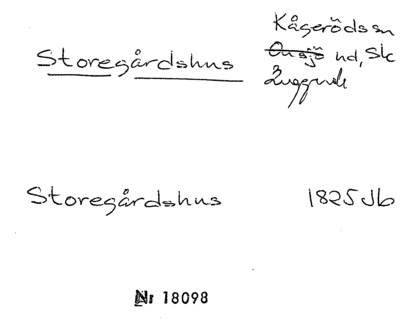 Storegårdshus
Kågerödssn
Onsjö hd, Sk
Luggude
Storegårdshus 1825 Jb
Nr 18098